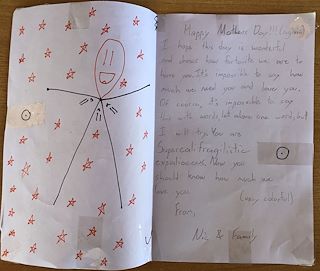 Happy Mothers Day!!! (again)
I hope this day is wonderful
and shows how fortunate we are to
have you. It's impossible to say how
much we need you and love you.
Of course, it's impossible to say
this with words, let alone one word, but
I will try. You are
Supercalifragilistic
expialidocious. Now you
should know how much we
love you. (very colorful)
From,
Nic & Family